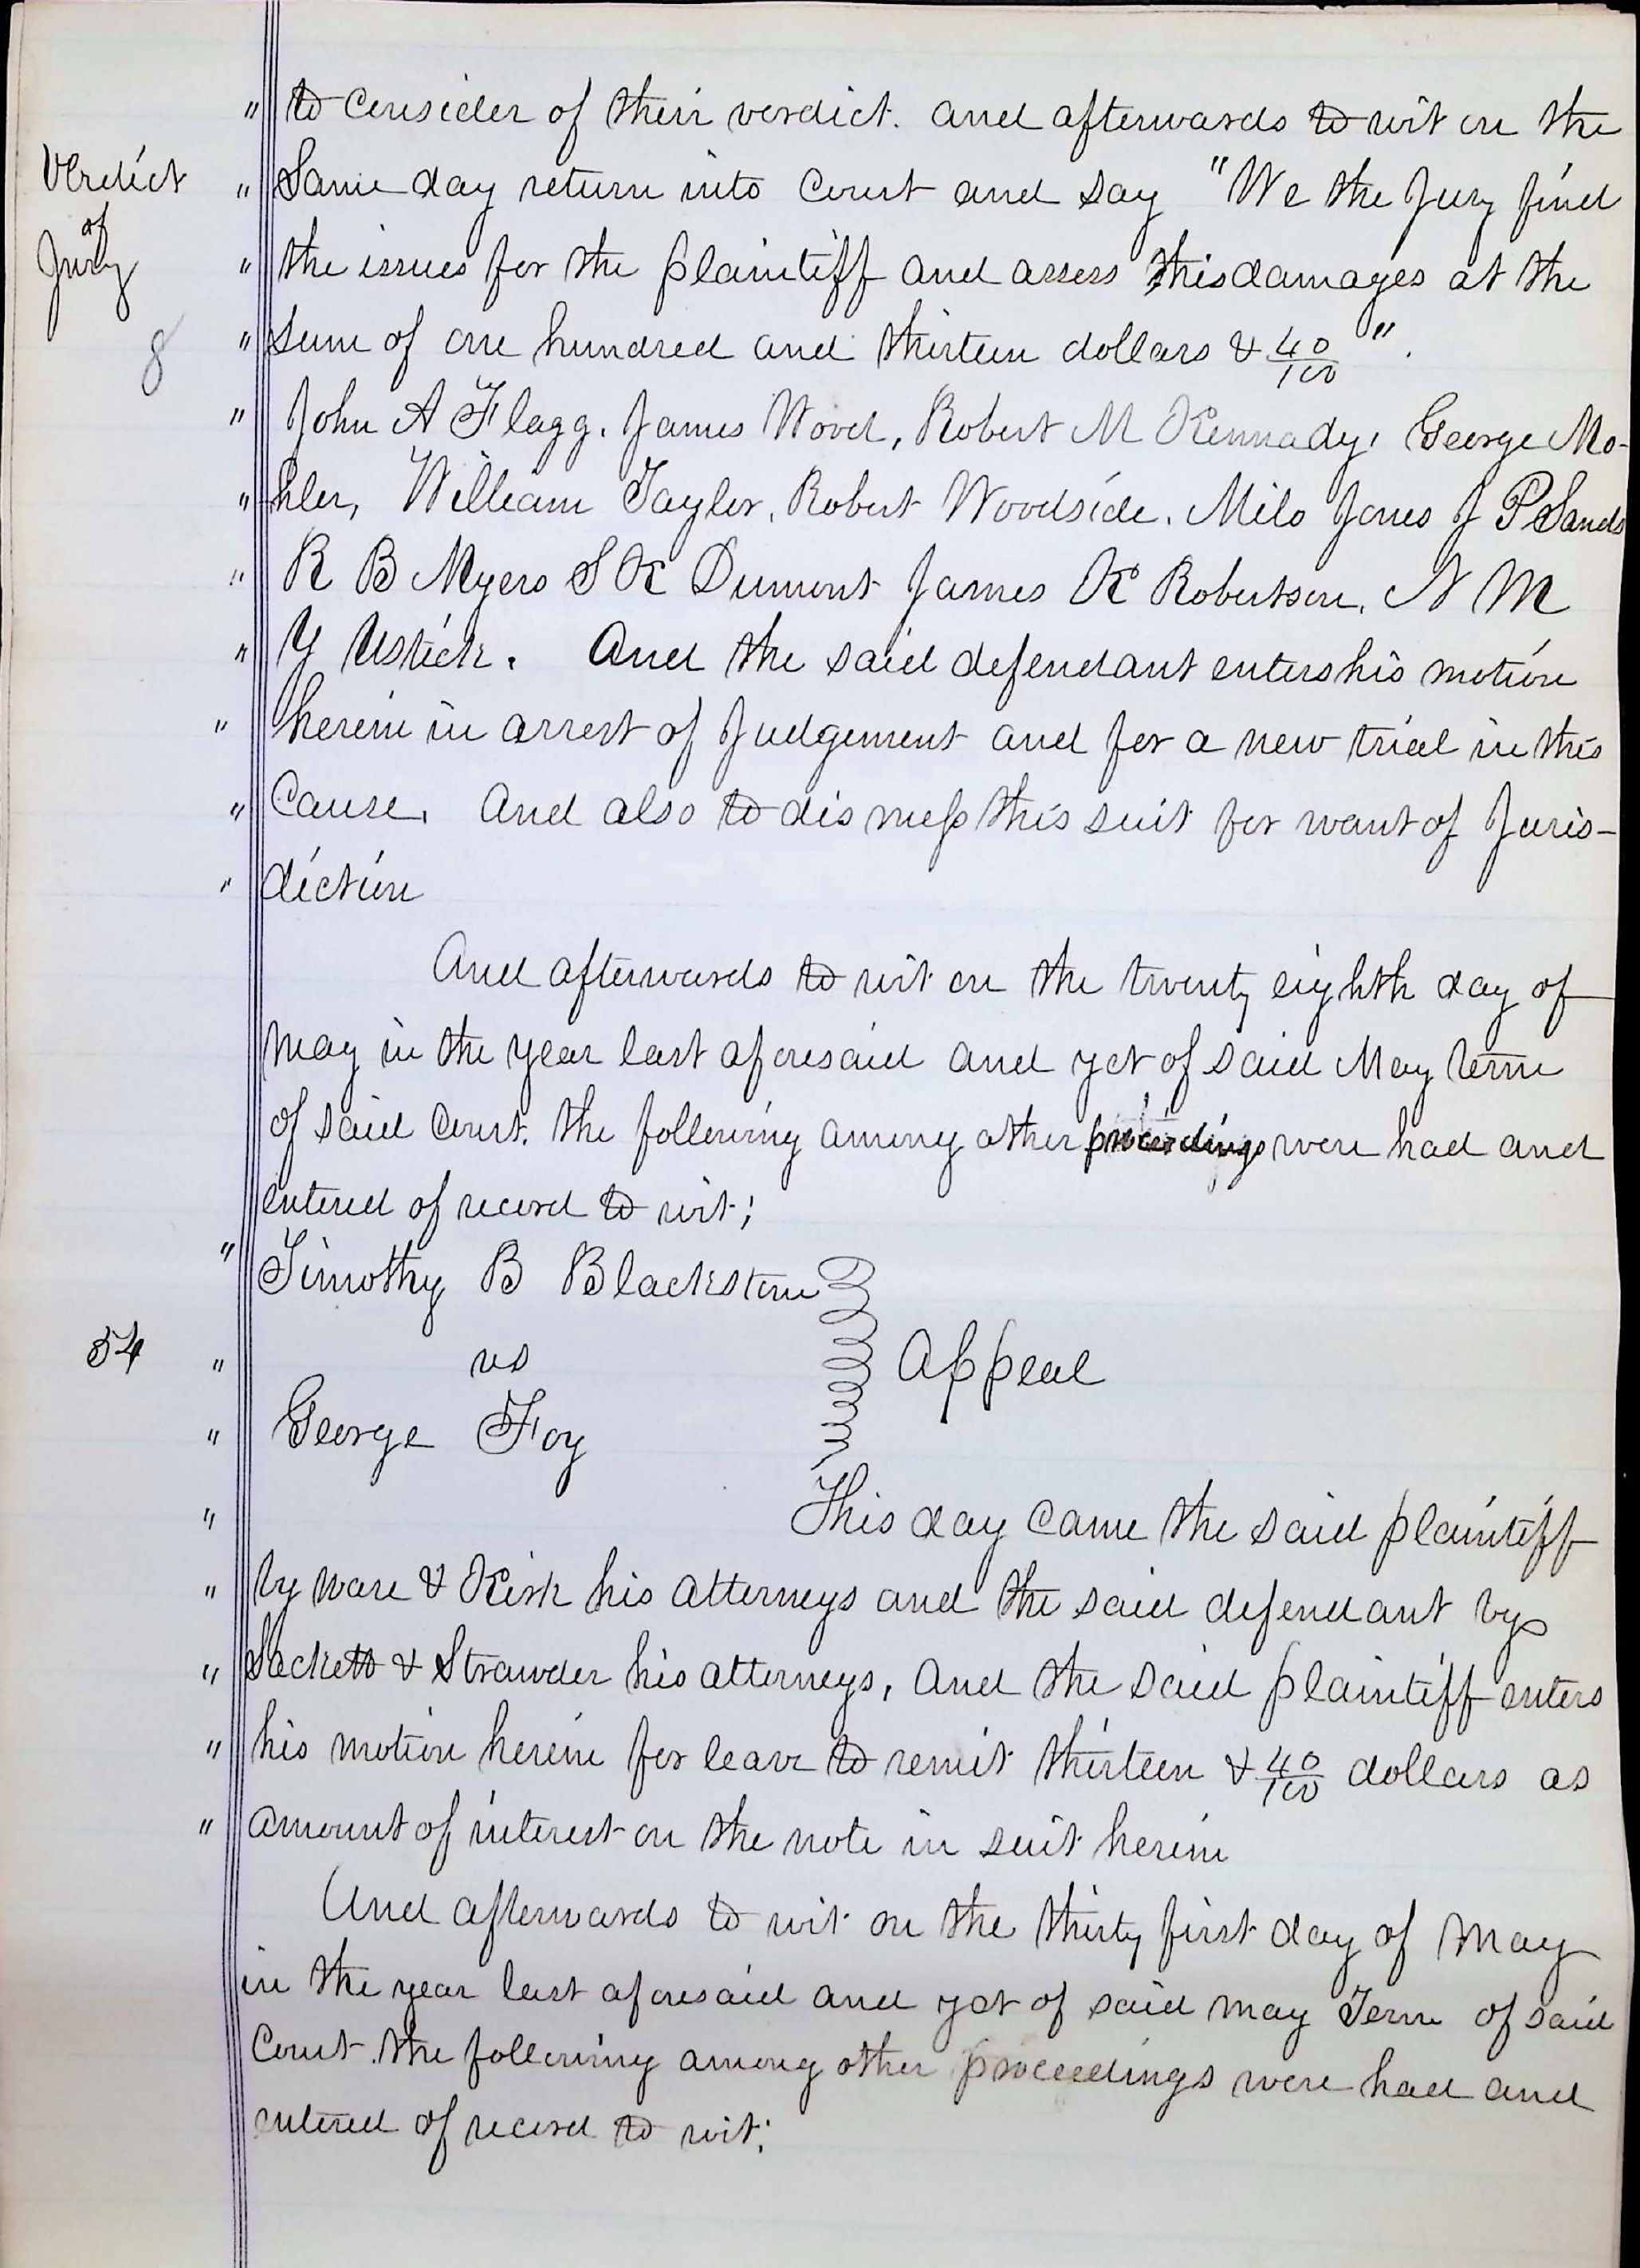 " to consider of their verdict. and afterwards to wit on the
Verdict " Same day return into Court and say "We the Jury find
of
Jury " the issues for the plaintiff and assess this damages at the
8 " sum of one hundred and thirteen dollars & 40/100 ".
" John A Flagg. James Wood, Robert M Kennady, George Mo-
" hler, William Taylor, Robert Woodside. Milo Jones J P Sands
" R B Myers S K Dumont James K Robertson, N M
" Y Ustick. And the said defendant enters his motion
" herein in arrest of Judgement and for a new trial in this
" Cause. And also to dismiss this suit for want of Juris-
" diction
And afterwards to wit on the twenty eighth day of
May in the year last aforesaid and yet of said May term
of said Court. the following among other proceedings were had and
entered of record to wit;
" Timothy B Blackstone
54 " vs Appeal
" George Foy
" This day came the said plaintiff
" by Ware & Kirk his attorneys and the said defendant by
" Sacketts & Strawder his attorneys, And the said plaintiff enters
" his motion herein for leave to remit thirteen & 40/100 dollars as
" amount of interest on the note in suit herein
And afterwards to wit on the thirty first day of May
in the year last aforesaid and yet of said May Term of said
Court. the following among other proceedings were had and
entered of record to wit: